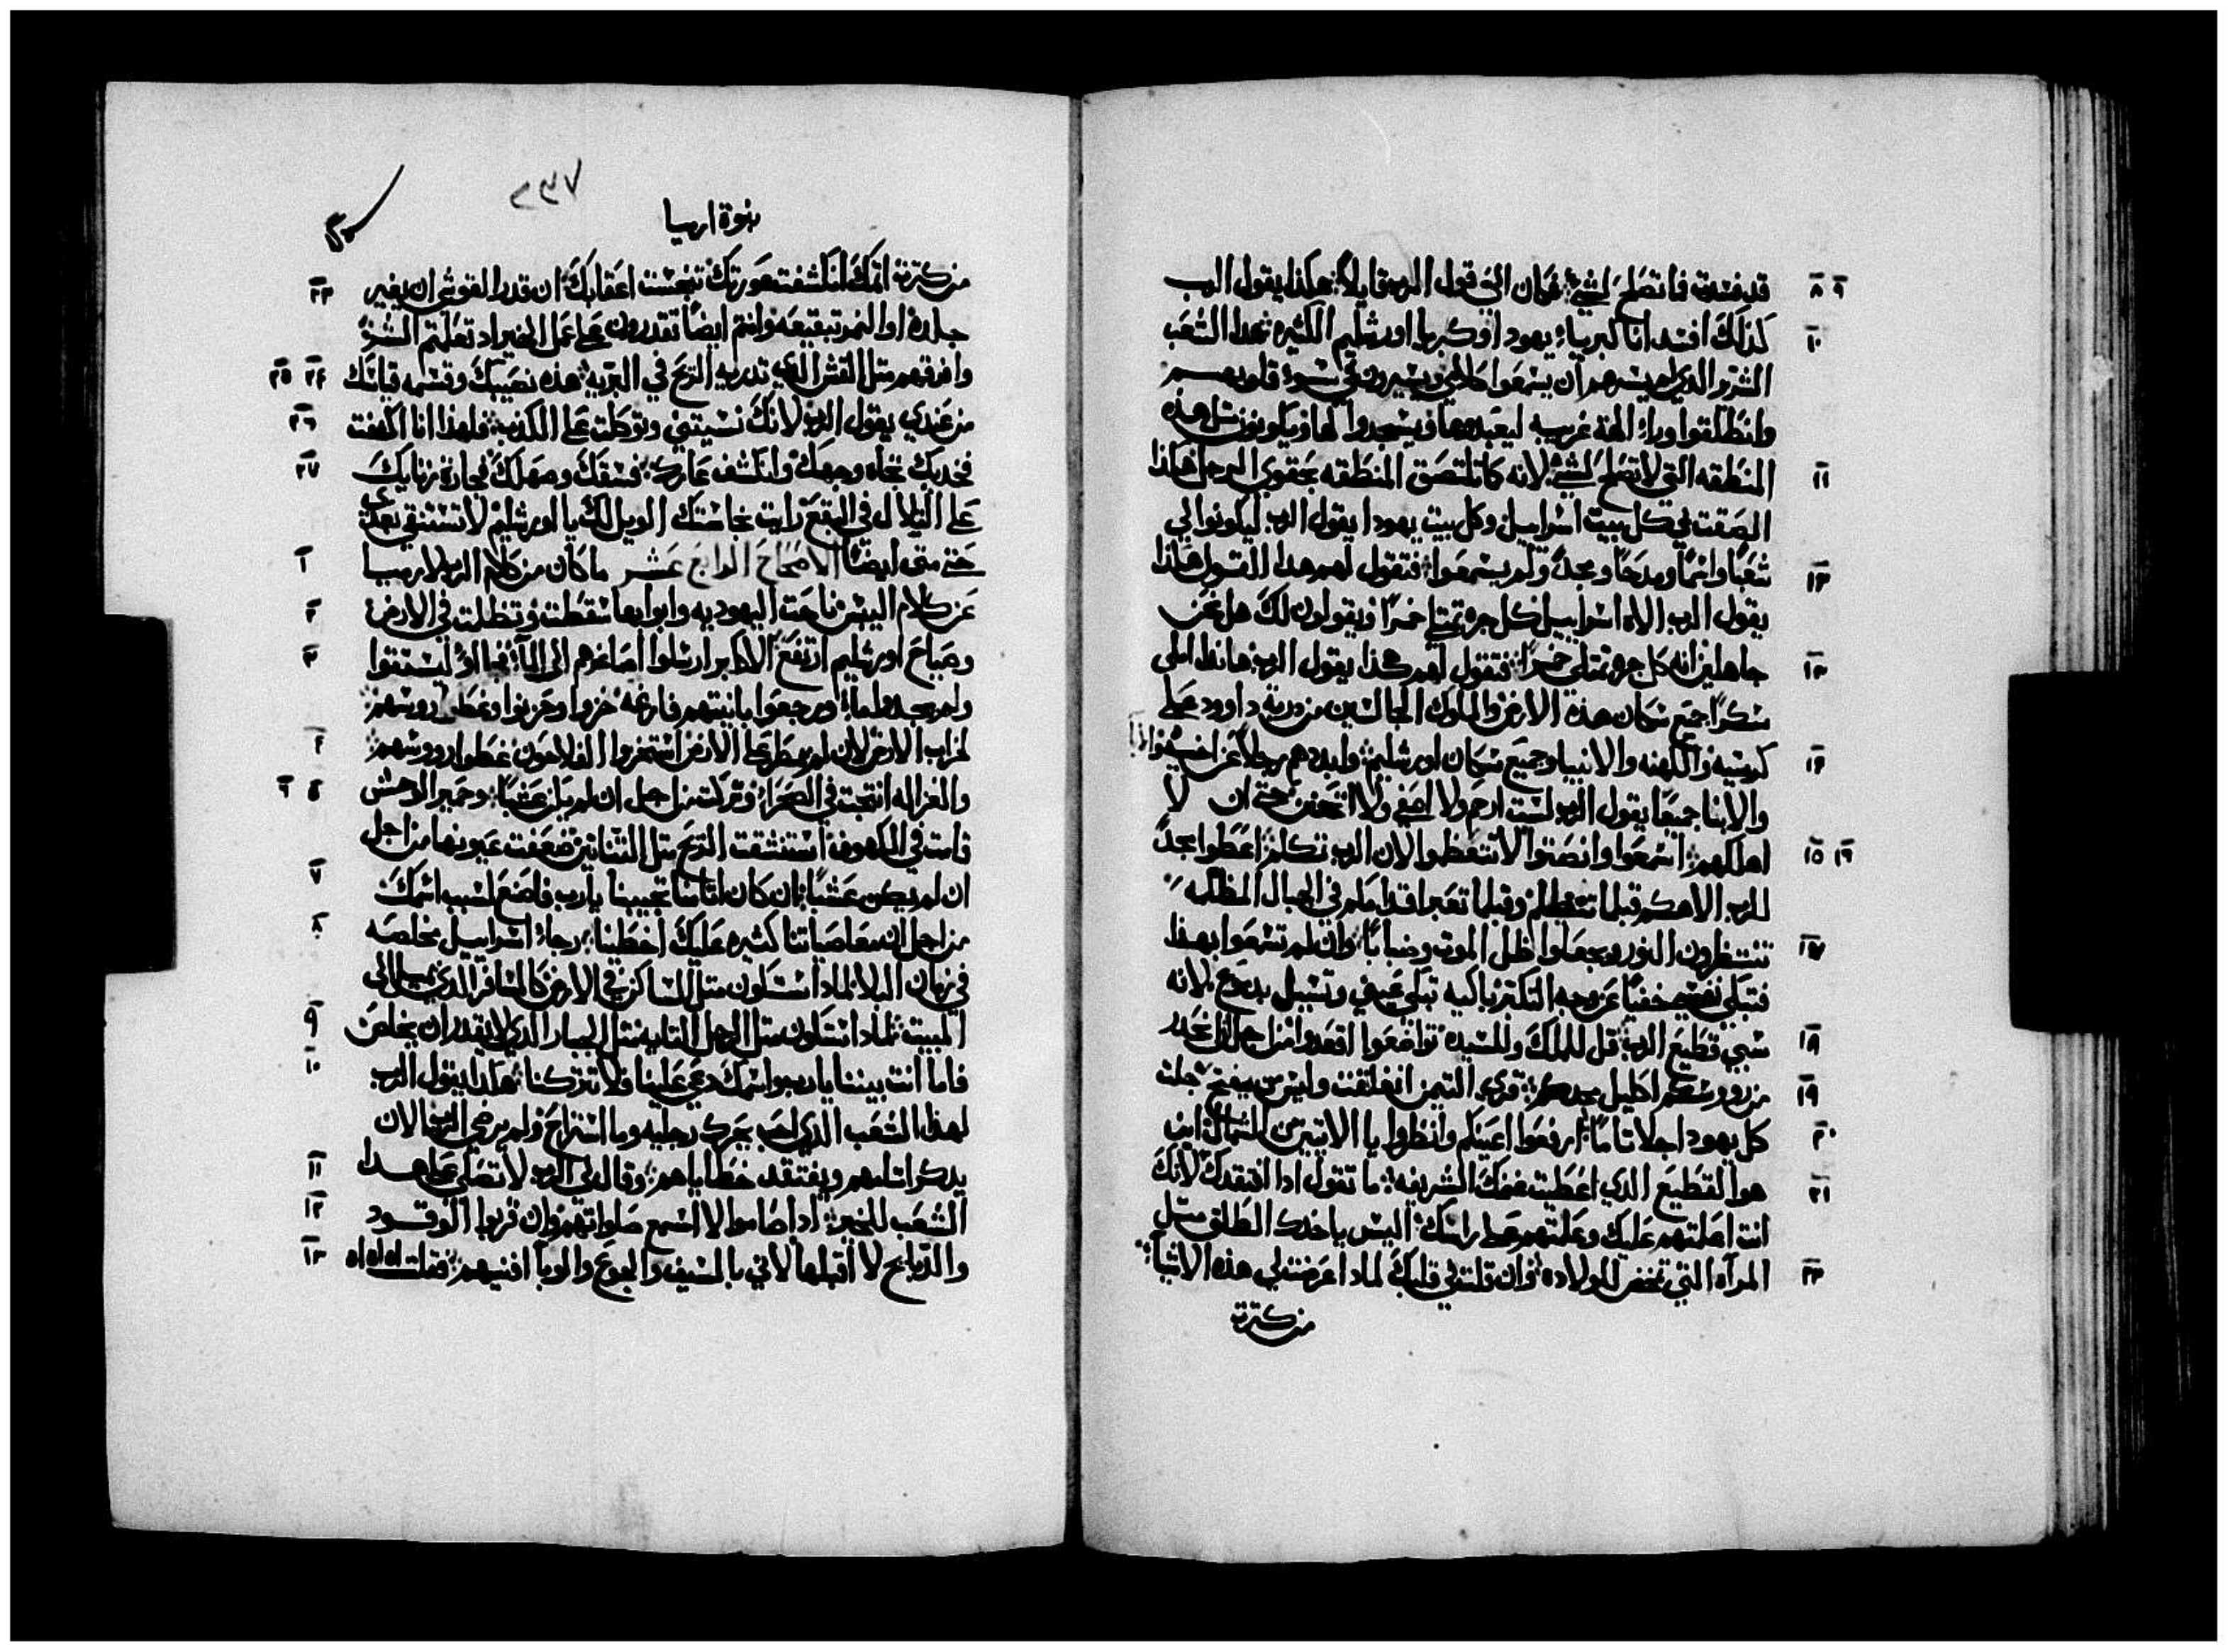 ٨ ٩ قد فسدت فما تصلح لشيء؛ فكان اليّ قول الرب قايلاً؛ هكذا يقول الرب
١٠ كذلك افسد انا كبرياء يهودا وكبريا اورشليم الكثيره؛ هدا الشعب
الشرير الدي لا يشير هم ان يسمعوا كلامي ويسيرون في سوء قلوبهم
وانطلقوا وراء الهة غريبه ليعبدوها ويسجدوا لها ويكونون مثل هذه
١١ المنطقه التي لا تصلح لشيء؛ لانه كما تلتصق المنطقه بحقوي الرجل هكذا
الصقت لي كل بيت اسراييل وكل بيت يهودا يقول الرب ليكونوا لي
١٢ شعبًا واسمًا ومدحًا ومجدًا ولم يسمعوا؛ فتقول لهم هدا القول هكذا
يقول الرب الاه اسراييل كل جره تمتلي خمرًا ويقولون لك هل نحن
١٣ جاهلين انه كل جره تمتلي خمرًا؛ فتقول لهم هكذا يقول الرب هانذا املي
سكرًا جميع سكان هذه الارض والملوك الجالسين من درية داوود على
١٤ كرسيه والكهنه والانبيا وجميع سكان اورشليم؛ وابددهم رجلاً عن اخيه والابا
والابنا جميعًا يقول الرب لست ارحم ولا اصفي ولا اتحنن حتى ان لا
١٥ ١٦ اهلكهم؛ اسمعوا وانصتوا لا تتعظموا لان الرب تكلم؛ اعطوا مجدًا
للرب الاهكم قبلما تتظلم وقبلما تعبر اقدامكم في الجبال المظلمه
١٧ تنتظرون النور ويجعلوا ظل الموت وضبابًا؛ وان لم تسمعوا بهذا
فتبكي نفسي خفيًا عن وجه التكبر باكيه تبكي عيني وتسيل بدموع لانه
١٨ سبي قطيع الرب؛ قل للملك وللسيده تواضعوا اقعدوا من اجل انه انحدر
١٩ من رووسكم اكليل مجدكم؛ قري التيمن انغلقت وليس من يفتح جلت
٢٠ كل يهودا جلا تامًا؛ ارفعوا اعينكم وانظروا يا الاتيين من الشمال اين
٢١ هو القطيع الدي اعطيت غنمك الشريفه؛ ما تقول ادا افتقدك لانك
انت اعلمتهم عليك وعلمتهم على راسك اليس ياخدك الطلق مثل
٢٢ المرآه التي تمخض للولاده؛ وان قلت في قلبك لمادا عرضت لي هذه الاشيا؛
من كثرة
٢٣٧
نبوة ارميا
٢٣ من كثرة اثمك انكشفت عورتك تنجست اعقابك؛ ان قدر القوشي ان يغير
جلده او النمر تبقيعه وانتم ايضًا تقدرون على عمل الخير اد تعلمتم الشر؛
٢٤ ٢٥ وافرقهم مثل القش الدي تدريه الريح في البريه؛ هذه نصيبك وقسمه قياتك
٢٦ من عندي يقول الرب لانك نسيتني وتوكلت على الكذب؛ فلهذا انا اكشفت
٢٧ فخديك تجاه وجهك وانكشف عارك؛ فسقك وصهلك نجارة زنايك
على التلال في البقع رايت نجاستك الويل لك يا اورشليم لا تستنقي بعدي
١ حتى متى ايضًا الاصحاح الرابع عشر ما كان من كلام الرب لارميا
٢ عن كلام اليبس ناحت اليهوديه وابوابها سقطت وتظلمت في الارض
٣ وصياح اورشليم ارتفع؛ الاكابر ارسلوا اصاغرهم الى الماء فجاوا ليستقوا
ولم يجدوا ماء ورجعوا بانيتهم فارغه خزوا وحزنوا وغطوا رووسهم؛
٤ لخراب الارض لان لم يمطر على الارض استخزوا الفلاحون غطوا رووسهم؛
٥ ٦ والغزاله انتجت في الصحراء وتركت من اجل ان لم يكن عشبًا؛ وحمير الوحش
قامت في الكهوف استنشقت الريح مثل التنانين ضعفت عيونها من اجل
٧ ان لم يكن عشبًا؛ ان كان اثامنا تجيبنا يا رب فاصنع لسبب اسمك
٨ من اجل ان معاصياتنا كثيره عليك اخطينا؛ رجاء اسراييل مخلصه
في زمان البلا لمادا ستكون مثل الساكن في الارض كالمسافر الدي يميل الى
٩ المبيت؛ لمادا ستكون مثل الرجل التايه مثل الجبار الدي لا يقدر ان يخلص
١٠ فاما انت بيننا يا رب واسمك دعي علينا فلا تتركنا؛ هكذا يقول الرب
لهذا الشعب الذي احب يحرك رجليه وما استراح ولم يرضي الرب الان
١١ يدكر اثامهم ويفتقد خطاياهم؛ وقال لي الرب لا تصلي على هدا
١٢ الشعب للخير؛ ادا صاموا لا اسمع صلواتهم وان قربوا الوقود
١٣ والدبايح لا اقبلها لاني بالسيف والجوع والوبا افنيهم؛ فقلت اه اه اه